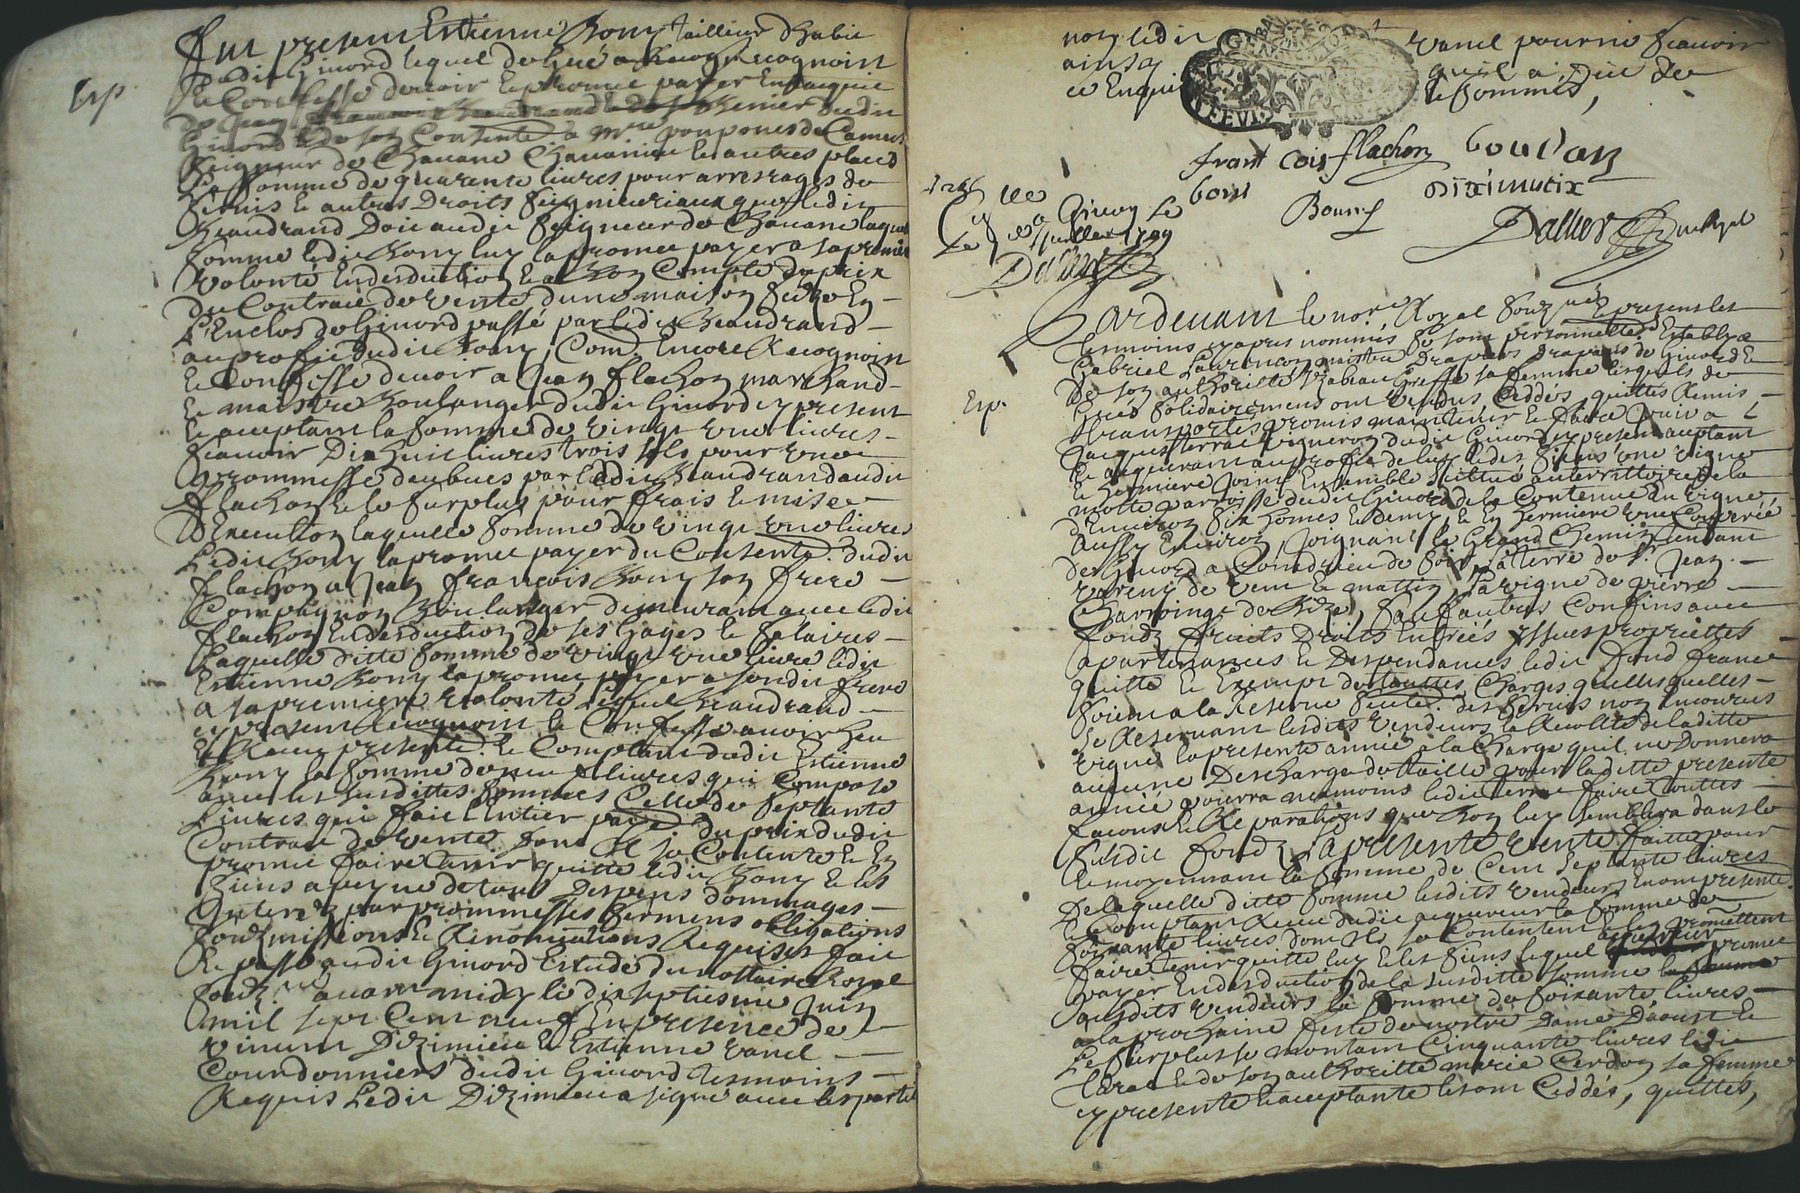 Fut present Estienne Bony Tailleur d'habit
dudit Givord lequel de gré a Recogneu Recognoist
Et Confesse devoir Et promet payer En acquit
de Jean
Givord Et de son Consente a Mre pompone de Camus
Seigneur de Chavane Chavanieu Et autres places
La somme de quarente livres pour arrerages de
Servis Et autres Droits Seigneuriaux que ledit
Beaudrand Doit audit Seigneur de Chavane laquelle
somme ledit Bony luy la promet payer a sa premiere
volonté En desduction Et a bon Compte du prix
du Contract de vente dune maison size En
L'Enclos de Givord passé par ledit Beaudrand
au profit dudit Bony, Comme Encore Recognoist
Et Confesse devoir a Jean flachon marchand
Et maistre Boulanger dudit Givord cy present
Et acceptant la somme de vingt une livres
scavoir Dix huit livres trois sols pour une
prommesse deubue par ledit Beaudrand audit
flachon Et le surplus pour frais Et mise
d'Execution laquelle somme de vingt une livres
Ledit Bony la promet payer du Consente dudit
flachon a Jean françois Bony son frere
Compagnon Boulanger demeurant avec ledit
flachon En desduction de ses Gages Et salaires
Laquelle ditte somme de vingt une livre ledit
Estienne Bony la promet payer a sondit frere
a sa premiere volonté, Lequel Beaudrand
cy present Recognoist Et Confesse avoir heu
Et Receu presente Et Comptant dudit Estienne
Bony la somme de neuf livres qui Compose
avec les susdittes sommes Celle de septante
livres qui fait L'Entier payé du prix dudit
Contract de vente dont Il se Contente Et En
promet faire tenir quitte ledit Bony Et les
siens a peyne de tous Despens dommages
Interez par prommesses sermens obligations
soubzmissions Et Renonciations Requises fait
Et passé audit Givord Estude du nottaire Royal
soubzné avant midy le dix septiesme Juin
mil sept Cent neuf En presence de
vincent Dizimieu Et Estienne vanel
Courdonniers dudit Givord tesmoins
Requis Ledit Dizimieu a signé avec les parties
Erp.
non ledit vanel pour ne scavoir
ainsy quil a dit de
ce Enquis Et sommés,
frant cois flachon boudan
boni Bony Diximieix
Dallier Not Royal
Givors Le
Juillet 1709
Pardevant le nore Royal soubzné Et present les
tesmoins cy apres nommés, se sont personnellemt Establys
Gabriel Laurençon maistre drapier drapant de Givord Et
de son authorité Isabeau Greffe sa femme lesquels de
Grez solidairement ont vendus, Ceddés, quittes Remis
Et transportés promis maintenir Et faire Jouir a
Jacques terrat vigneron dudit Givord cy present acceptant
Et acquerant au profit de luy Et des siens une vigne
Et hermiere Joints Ensemble scittué au territtoire de la
motte paroisse dudit Givord de la Contenue En vigne
d'Environ six homes Et demy, Et En hermiere une Couperée
aussy Environ, Joignant le Grand Chemin tendant
de Givord a Condrieu de soir, La terre de Sr Jean
vareny de vent Et mattin, La vigne de pierre
Charroinge de bize, sauf autres Confins avec
fondz fruits Droits Entrées yssues propriettes
apartenances Et Despendances ledit fond franc
quitte Et Exempt de touttes Charges quelles quelles
soient a la Reserve seule des servis non Encourus
se Reservant lesdits vendeurs la Recolte de laditte
vigne la presente année a la Charge quil ne Donnera
aucune Descharge de taille pour laditte presente
année pourra neamoins ledit terrat faire touttes
façons Et Reparations que bon luy semblera dans le
susdit fondz, La presente vente faitte pour
Et moyennant la somme de Cent septante livres
De laquelle ditte somme lesdits vendeurs En ont presente
Et Comptant Receu dudit acquereur la somme de
soixante livres dont Ils se Contentent Et promettent
faire tenir quitte luy Et les siens lequel acquereur promet
payer En desduction de la susditte somme
ausdits vendeurs la somme de soixante livres
a la prochaine feste de nostre Dame Daoust Et
Le surplus se montant Cinquante livres ledit
terrat Et de son authoritté marie Cerdon sa femme
cy presente Et acceptante le sont Ceddés, quittes,
Erp.